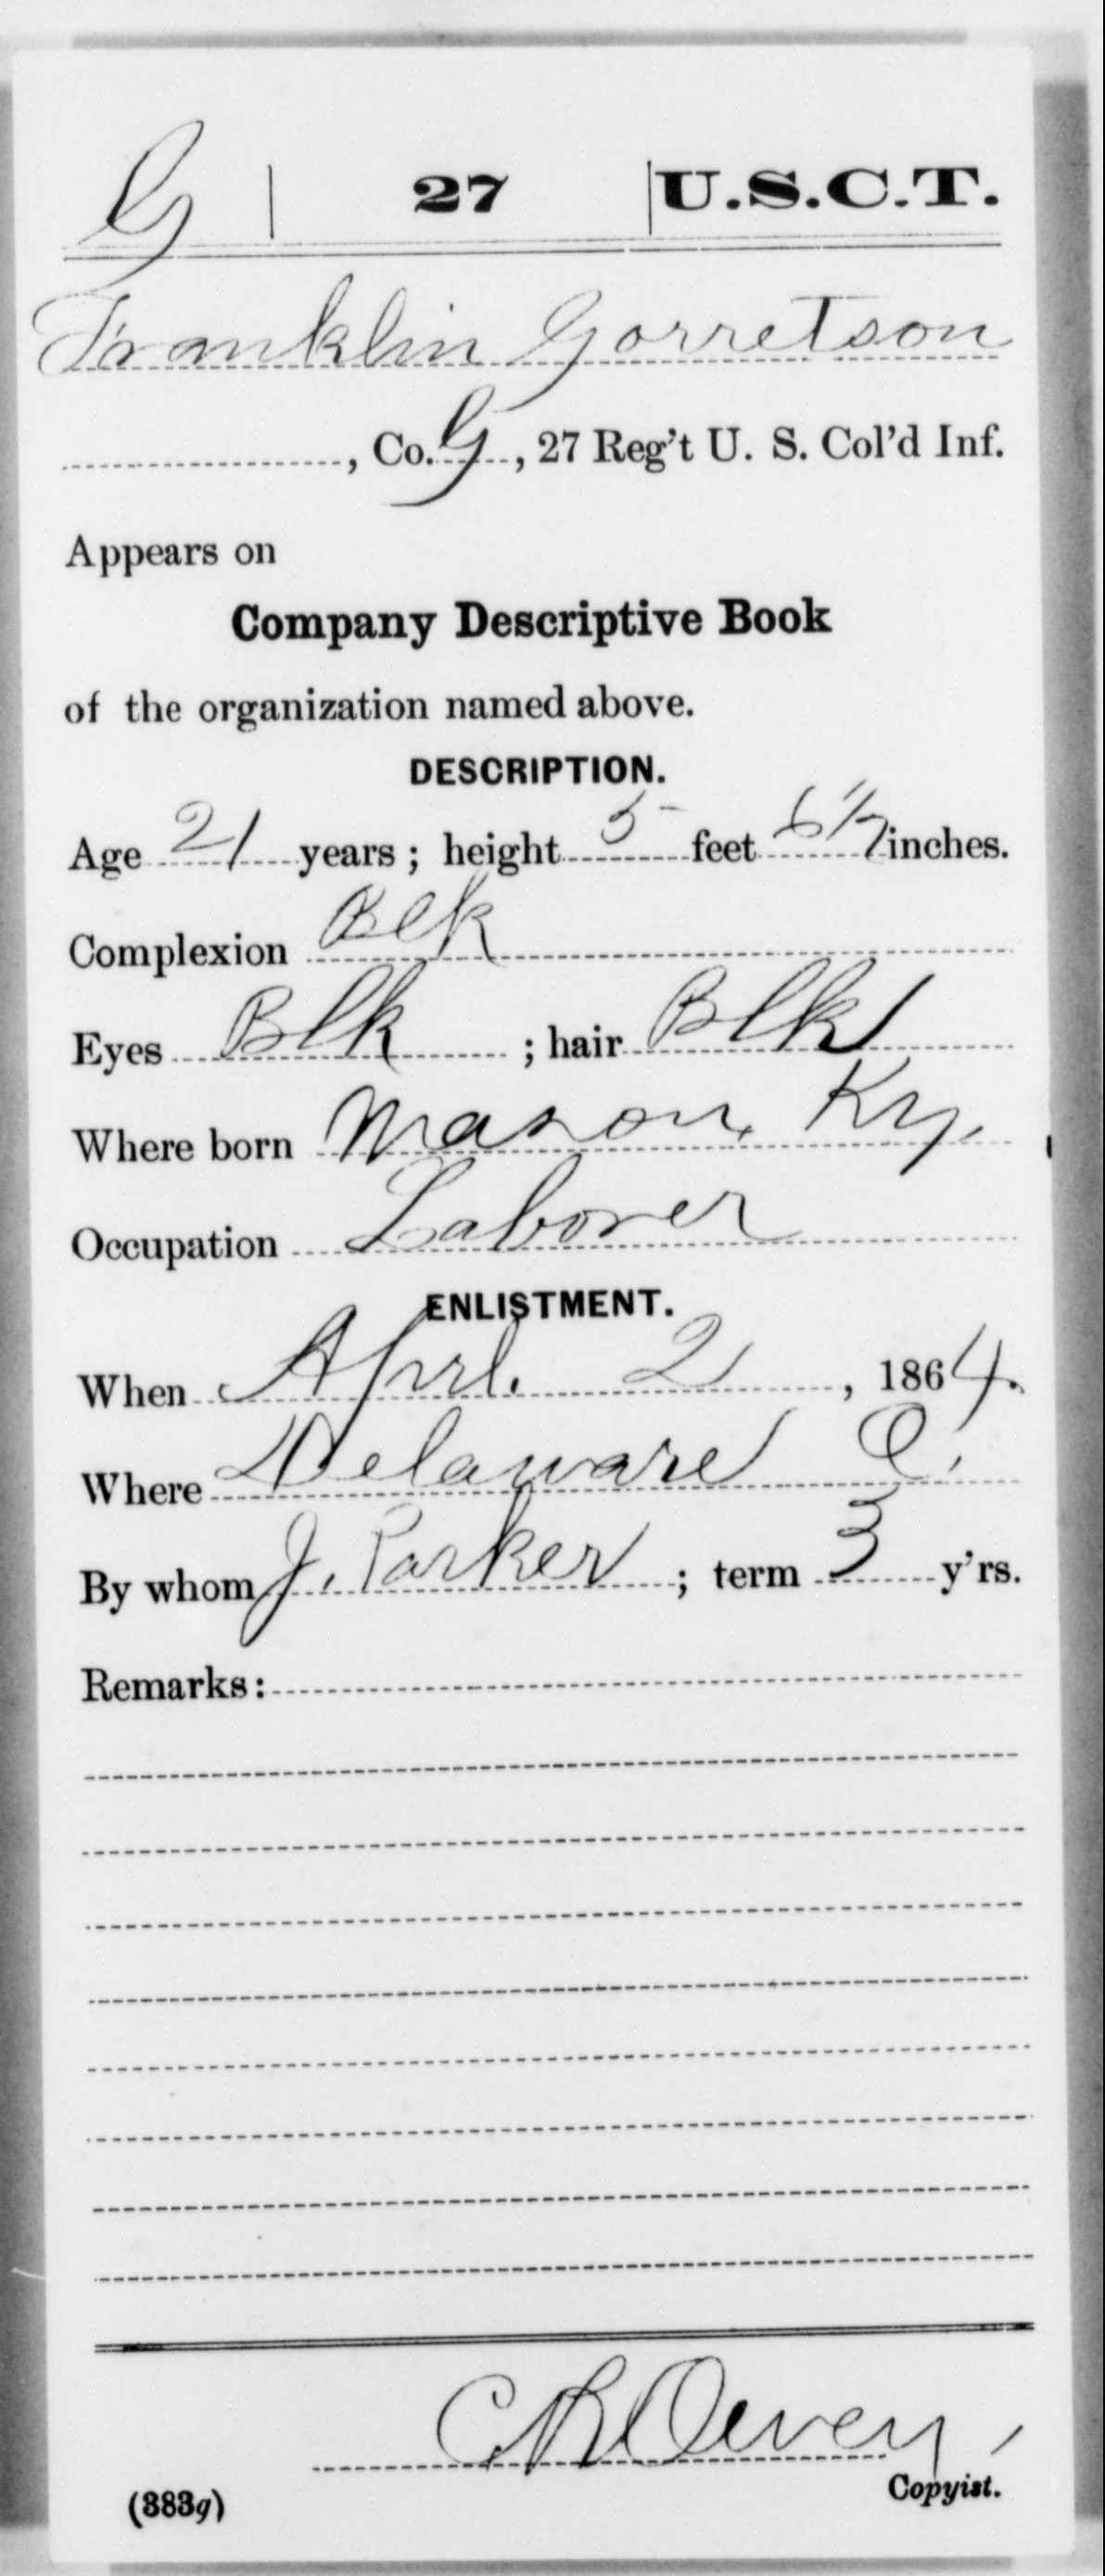 G | 27 | U.S.C.T.
Franklin Gorretson
, Co. G, 27 Reg't U. S. Col'd Inf.
Appears on
Company Descriptive Book
of the organization named above.
DESCRIPTION.
Age 21 years; height 5 feet 6 1/2 inches.
Complexion Blk
Eyes Blk ; hair Blk
Where born Mason, Ky.
Occupation Laborer
ENLISTMENT.
When Aprl. 2, 1864.
Where Delaware O.
By whom J. Parker ; term 3 y'rs.
Remarks:
Copyist.
(383g)